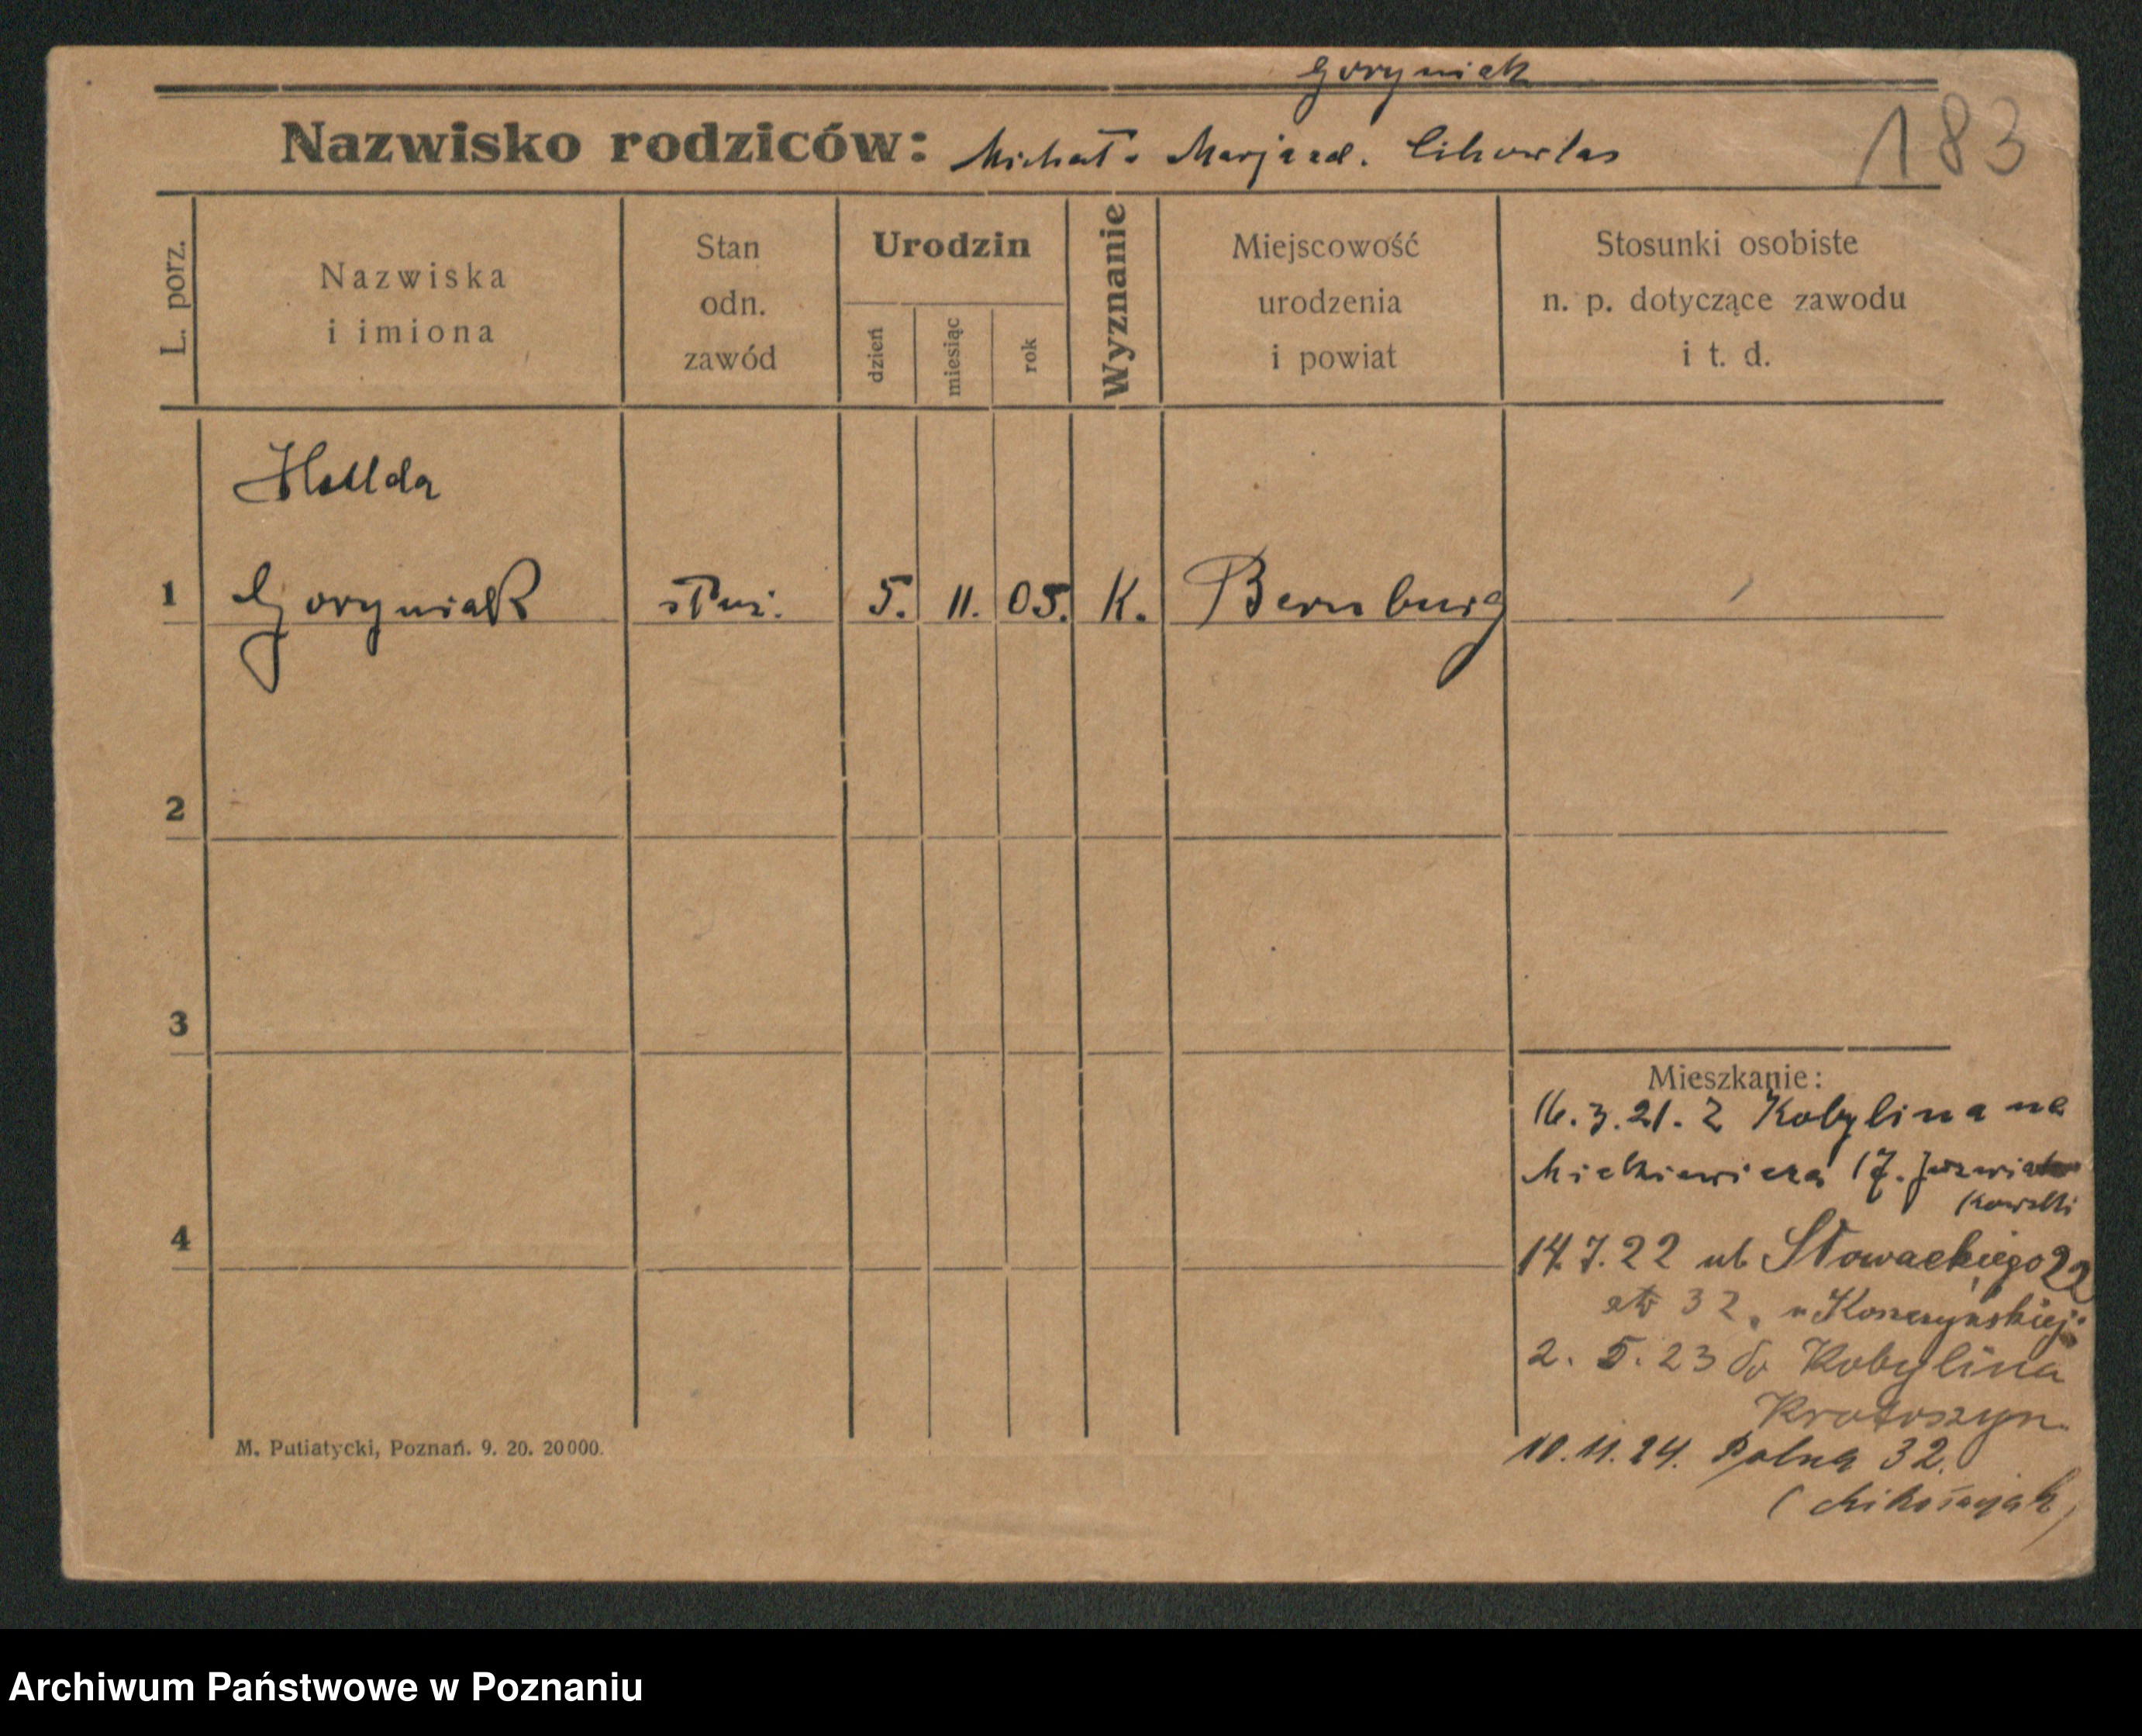 Goryniak
Nazwisko rodziców: Michał. Marja zd.
183
L. porz.
Nazwiska
i imiona
Stan
odn.
zawód
Urodzin
dzień
miesiąc
rok
Wyznanie
Miejscowość
urodzenia
i powiat
Stosunki osobiste
n. p. dotyczące zawodu
i t. d.
1 Goryniak służ. 5. 11. 05. K. Bernburg
2
3
4
Mieszkanie:
16.3.21. z Kobylina na
Mickiewicza 17.
14.7.22 ul. Słowackiego 22
32. u Koszczyńskiej.
2. 5. 23 do Kobylina
Krotoszyn.
10.11.24. Polna 32.
(Mikołajak)
M. Putiatycki, Poznań. 9. 20. 20000.
Archiwum Państwowe w Poznaniu